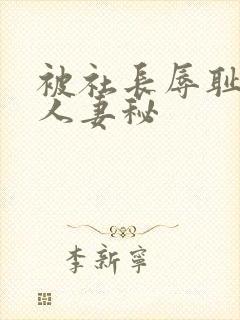 被社長辱耻
人妻秘
李新寧